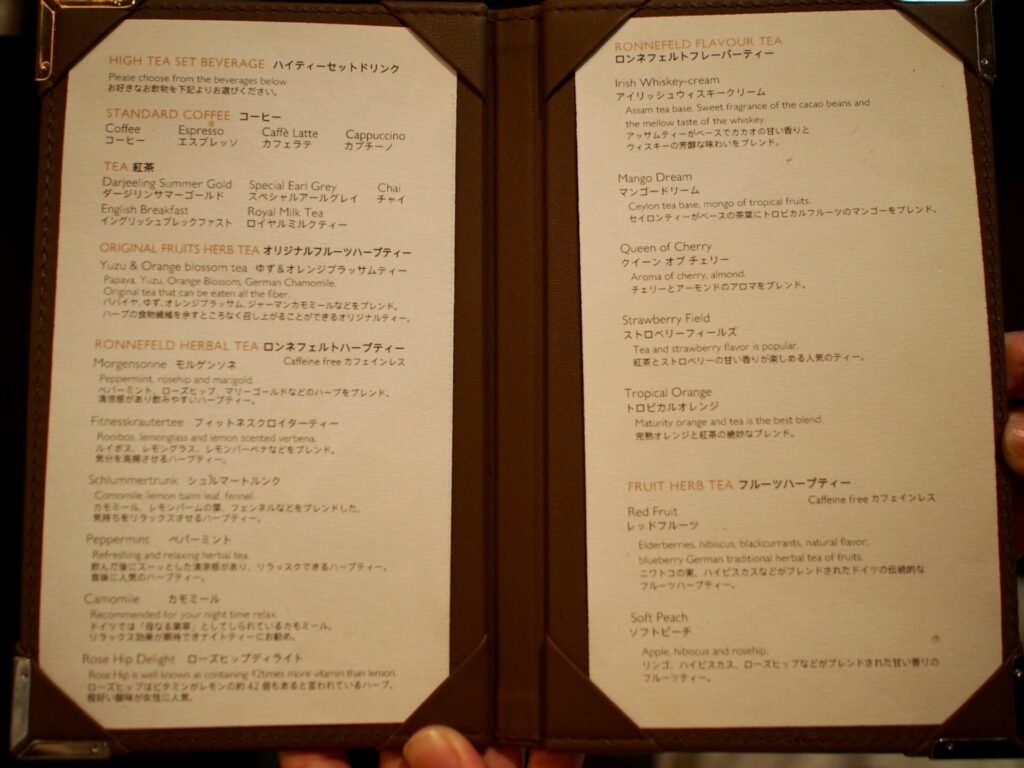 HIGH TEA SET BEVERAGE ハイティーセットドリンク
Please choose from the beverages below
お好きなお飲物を下記よりお選びください。
STANDARD COFFEE コーヒー
Coffee Espresso Caffè Latte Cappuccino
コーヒー エスプレッソ カフェラテ カプチーノ
TEA 紅茶
Darjeeling Summer Gold Special Earl Grey Chai
ダージリンサマーゴールド スペシャルアールグレイ チャイ
English Breakfast Royal Milk Tea
イングリッシュブレックファスト ロイヤルミルクティー
ORIGINAL FRUITS HERB TEA オリジナルフルーツハーブティー
Yuzu & Orange blossom tea ゆず＆オレンジブラッサムティー
Papaya, Yuzu, Orange Blossom, German Chamomile.
Original tea that can be eaten all the fiber.
パパイヤ、ゆず、オレンジブラッサム、ジャーマンカモミールなどをブレンド。
ハーブの食物繊維を余すところなく召し上がることができるオリジナルティー。
RONNEFELD HERBAL TEA ロンネフェルトハーブティー
Caffeine free カフェインレス
Morgensonne モルゲンソネ
Peppermint, rosehip and marigold.
ペパーミント、ローズヒップ、マリーゴールドなどのハーブをブレンド。
清涼感があり飲みやすいハーブティー。
Fitnesskrautertee フィットネスクロイターティー
Rooibos, lemonglass and lemon scented verbena.
ルイボス、レモングラス、レモンバーベナなどをブレンド。
気分を高揚させるハーブティー。
Schlummertrunk シュルマートルンク
Comomile, lemon balm leaf, fennel.
カモミール、レモンバームの葉、フェンネルなどをブレンドした、
気持ちをリラックスさせるハーブティー。
Peppermint ペパーミント
Refreshing and relaxing herbal tea.
飲んだ後にスーッとした清涼感があり、リラックスできるハーブティー。
食後に人気のハーブティー。
Camomile カモミール
Recommended for your night time relax.
ドイツでは「母なる薬草」としてしられているカモミール。
リラックス効果が期待できナイトティーにお勧め。
Rose Hip Delight ローズヒップディライト
Rose Hip is well known as containing 42times more vitamin than lemon.
ローズヒップはビタミンがレモンの約42倍もあると言われているハーブ。
程好い酸味が女性に人気。
RONNEFELD FLAVOUR TEA
ロンネフェルトフレーバーティー
Irish Whiskey-cream
アイリッシュウィスキークリーム
Assam tea base, Sweet fragrance of the cacao beans and
the mellow taste of the whiskey.
アッサムティーがベースでカカオの甘い香りと
ウィスキーの芳醇な味わいをブレンド。
Mango Dream
マンゴードリーム
Ceylon tea base, mongo of tropical fruits.
セイロンティーがベースの茶葉にトロピカルフルーツのマンゴーをブレンド。
Queen of Cherry
クイーン オブ チェリー
Aroma of cherry, almond.
チェリーとアーモンドのアロマをブレンド。
Strawberry Field
ストロベリーフィールズ
Tea and strawberry flavor is popular.
紅茶とストロベリーの甘い香りが楽しめる人気のティー。
Tropical Orange
トロピカルオレンジ
Maturity orange and tea is the best blend.
完熟オレンジと紅茶の絶妙なブレンド。
FRUIT HERB TEA フルーツハーブティー
Caffeine free カフェインレス
Red Fruit
レッドフルーツ
Elderberries, hibiscus, blackcurrants, natural flavor,
blueberry German traditional herbal tea of fruits.
ニワトコの実、ハイビスカスなどがブレンドされたドイツの伝統的な
フルーツハーブティー。
Soft Peach
ソフトピーチ
Apple, hibiscus and rosehip.
リンゴ、ハイビスカス、ローズヒップなどがブレンドされた甘い香りの
フルーツティー。